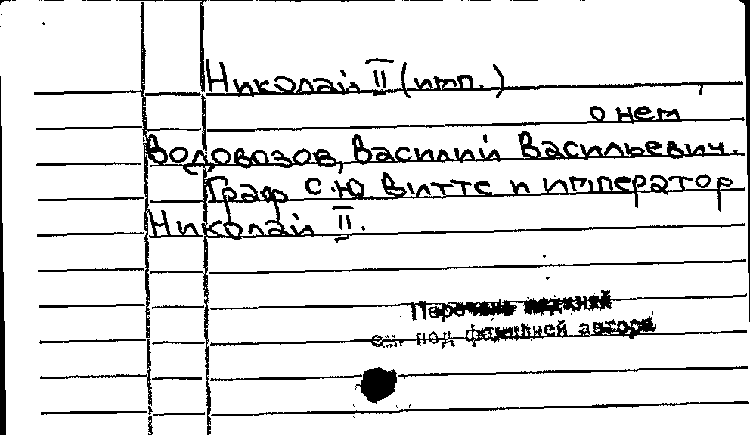 Николай II (имп.)
о нем
Водовозов, Василий Васильевич.
Граф С.Ю Витте и император
Николай II.
Перечень изданий
см. под фамилией автора